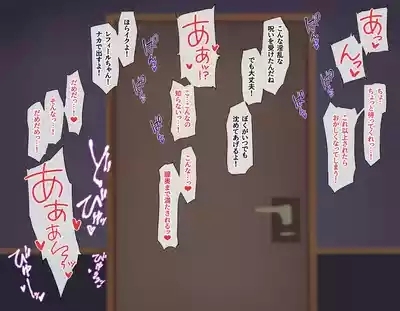 あっ
んっ
ちょ…
ちょっと待ってくれっ…!
これ以上されたら
おかしくなってしまう!
こんな淫乱な
呪いを受けたんだね
でも大丈夫!
ぼくがいつでも
沈めてあげるよ!
あぁん!?
こ…こんなの
知らないっ…!
こんな…っ
膣奥まで満たされるっ…
ほらイクよ!
レフィールちゃん!
ナカで出すよ!
だめだっ…!
そんなっ…!
だめだめっ…!
あぁぁんっ
どっ
びゅっ
びゅーっ